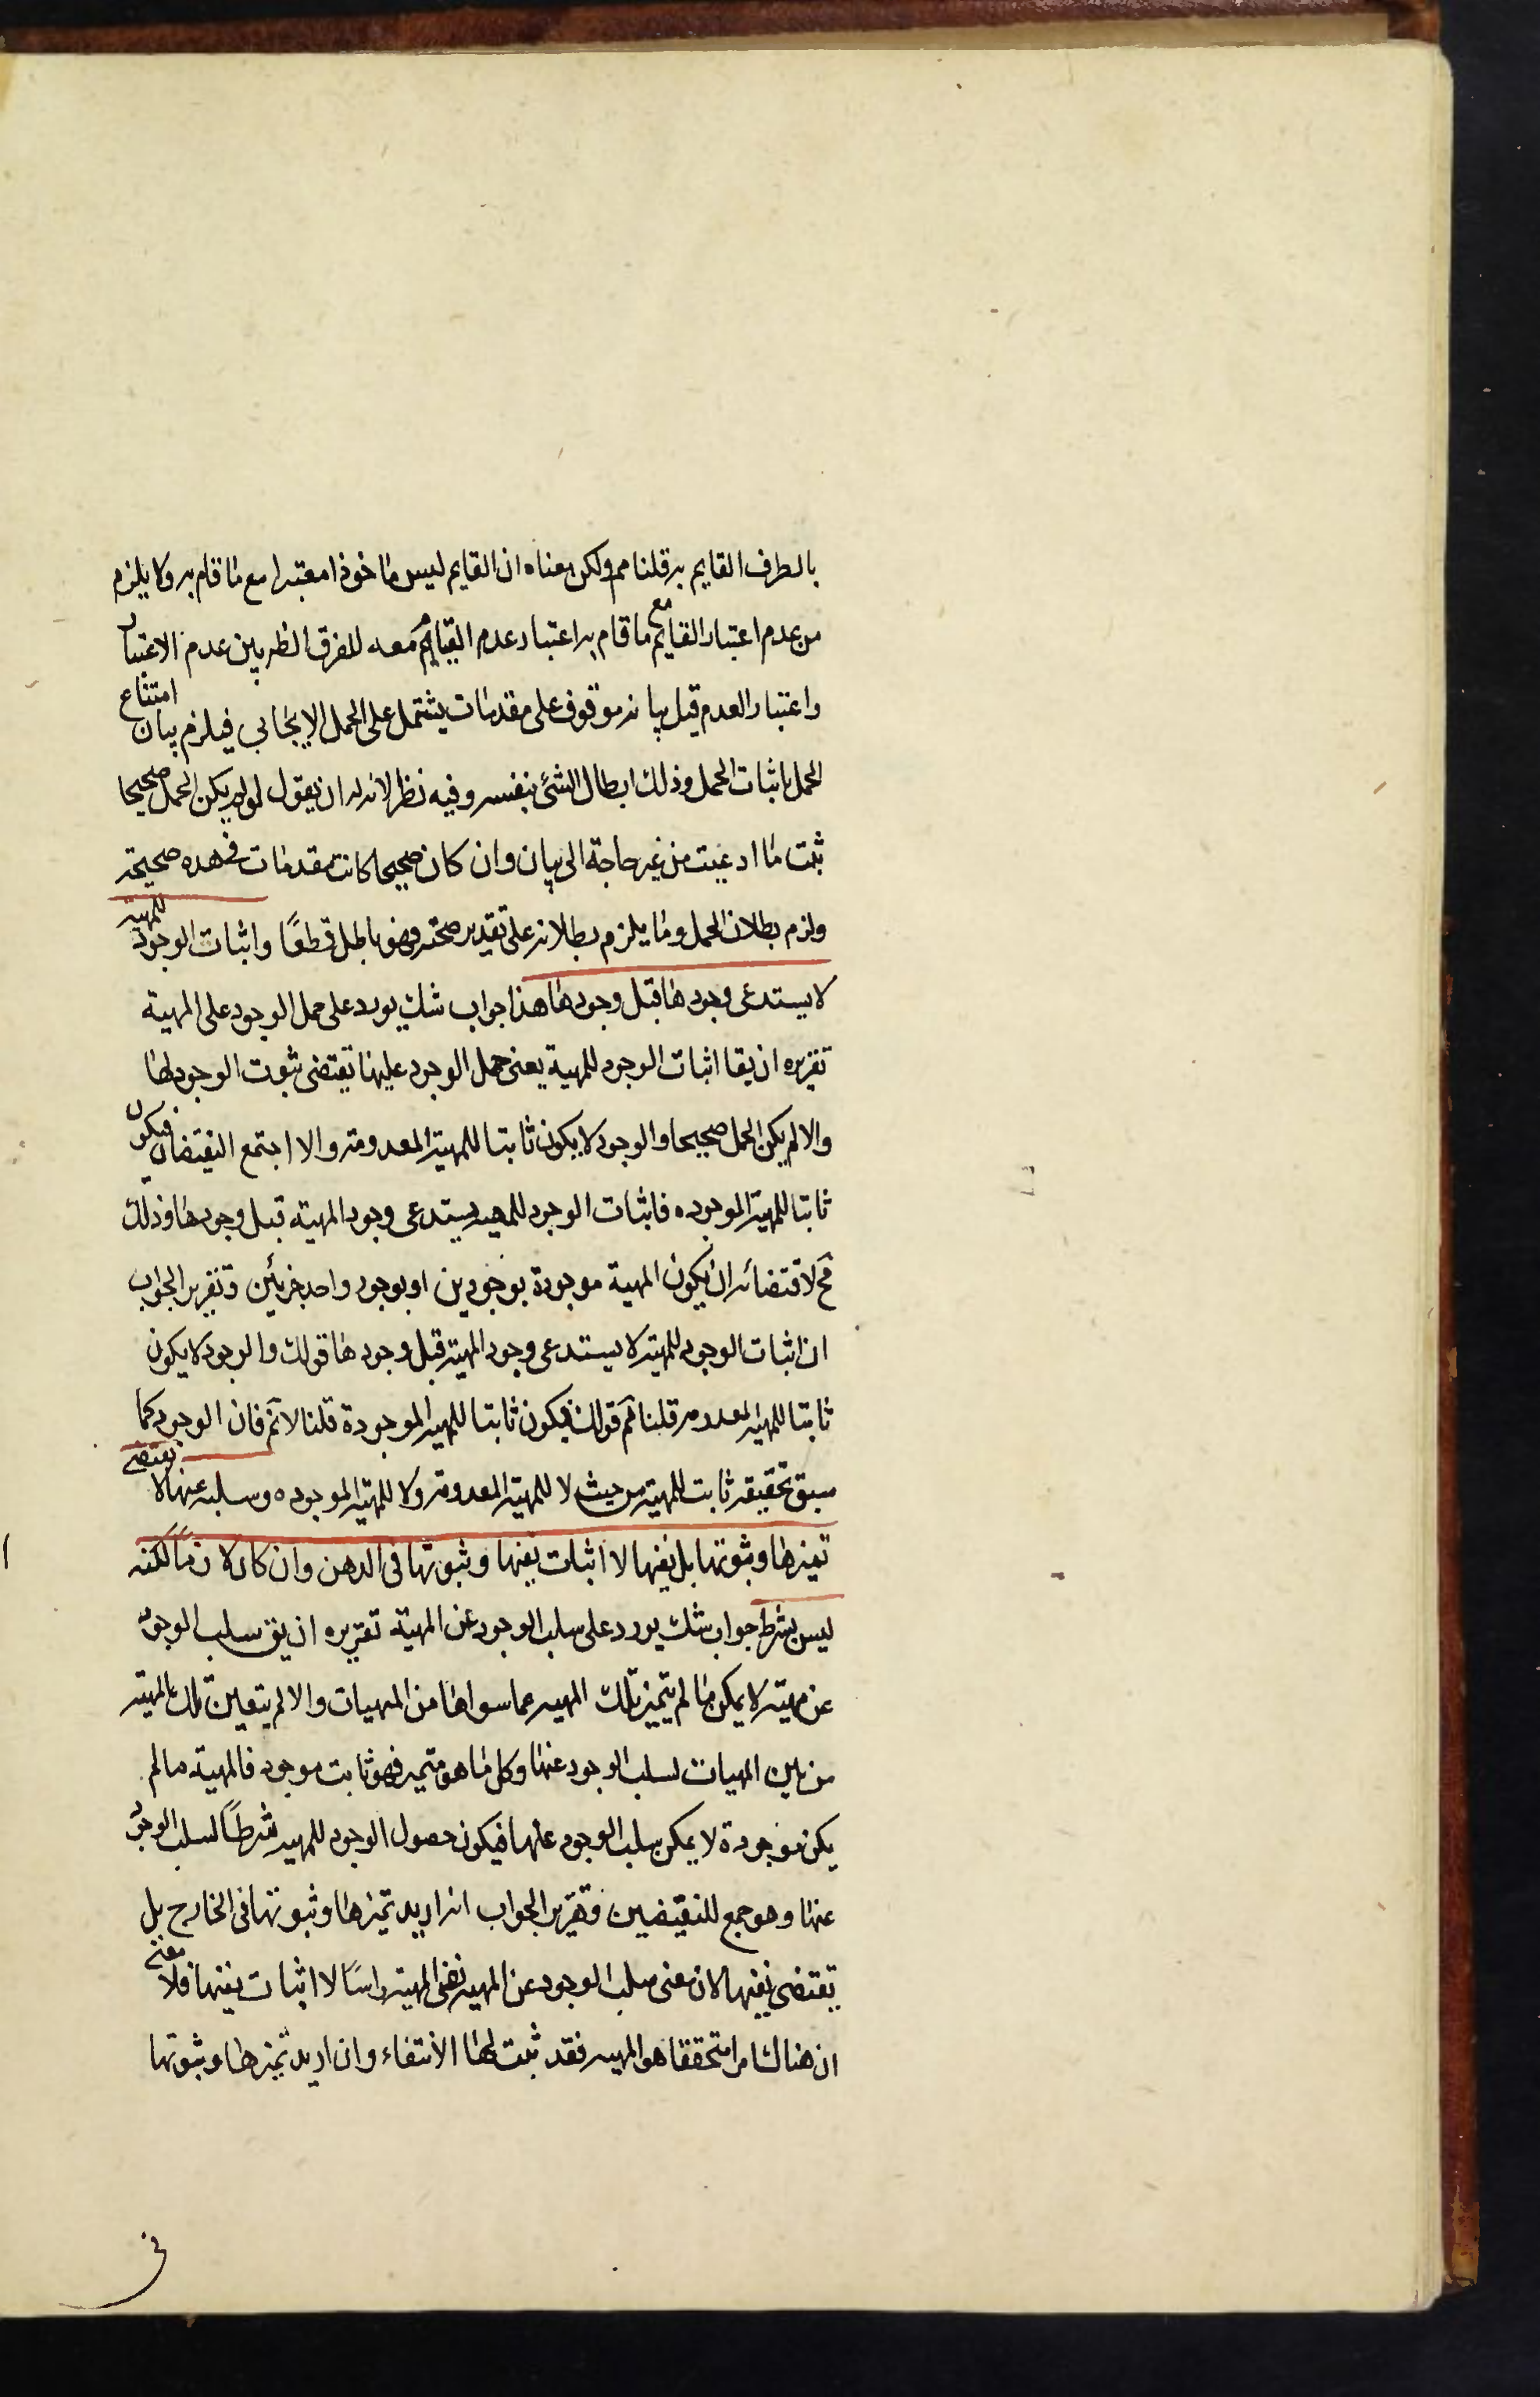 بالطرف القايم به قلنا مم ولكن معناه ان القايم ليس ماخوذا معتبرا مع ما قام به ولا يلزم
من عدم اعتبار القايم مع ما قام به اعتبار عدم القيام معه للفرق الظ بين عدم الاعتبار
واعتبار العدم قيل بيانه موقوف على مقدمات يشتمل على الحمل الايجابي فيلزم بيان امتناع
الحمل باثبات الحمل وذلك ابطال الشئ بنفسه وفيه نظر لانه له ان يقول لو لم يكن الحمل صحيحا
ثبت ما ادعيت من غير حاجة الى بيان وان كان صحيحا كانت مقدمات هذه صحيحة
ولزم بطلان الحمل وما يلزم بطلانه على تقدير صحته فهو باطل قطعًا واثبات الوجود للمهية
لا يستدعى وجودها قبل وجودها هذا جواب شك يورد على حمل الوجود على المهية
تقريره ان يقا اثبات الوجود للمهية يعنى حمل الوجود عليها يقتضى ثبوت الوجود لها
والا لم يكن الحمل صحيحا والوجود لا يكون ثابتا للمهية المعدومة والا اجتمع النقيضان فيكون
ثابتا للمهية الموجوده فاثبات الوجود للمهية يستدعى وجود المهية قبل وجودها وذلك
مح لاقتضائه ان يكون المهية موجودة بوجودين او بوجود واحد مرتين وتقرير الجواب
ان اثبات الوجود للمهية لا يستدعى وجود المهية قبل وجودها قولك والوجود لا يكون
ثابتا للمهية المعدومة قلنا مم قولك فيكون ثابتا للمهية الموجودة قلنا لانم فان الوجود كما
سبق تحقيقه ثابت للمهية من حيث لا للمهية المعدومة ولا للمهية الموجوده وسلبه عنها لا يقتضى
تميزها وثبوتها بل نفيها لا اثبات نفيها وثبوتها فى الذهن وان كان لازمًا لكنه
ليس بشرط جواب شك يورد على سلب الوجود عن المهية تقريره ان يق سلب الوجود
عن مهية لا يمكن ما لم يتميز تلك المهية عما سواها من المهيات والا لم يتعين تلك المهية
من بين المهيات لسلب الوجود عنها وكل ما هو متميز فهو ثابت موجود فالمهية ما لم
يكن موجودة لا يمكن سلب الوجود عنها فيكون حصول الوجود للمهية شرطًا لسلب الوجود
عنها وهو جمع للنقيضين وتقرير الجواب انه اريد تميزها وثبوتها فى الخارج بل
يقتضى نفيها لان معنى سلب الوجود عن المهية نفى المهية راسًا لا اثبات نفيها فلا معنى
ان هناك امرا متحققا هو المهية فقد ثبت لها الانتفاء وان اريد تميزها وثبوتها
فى